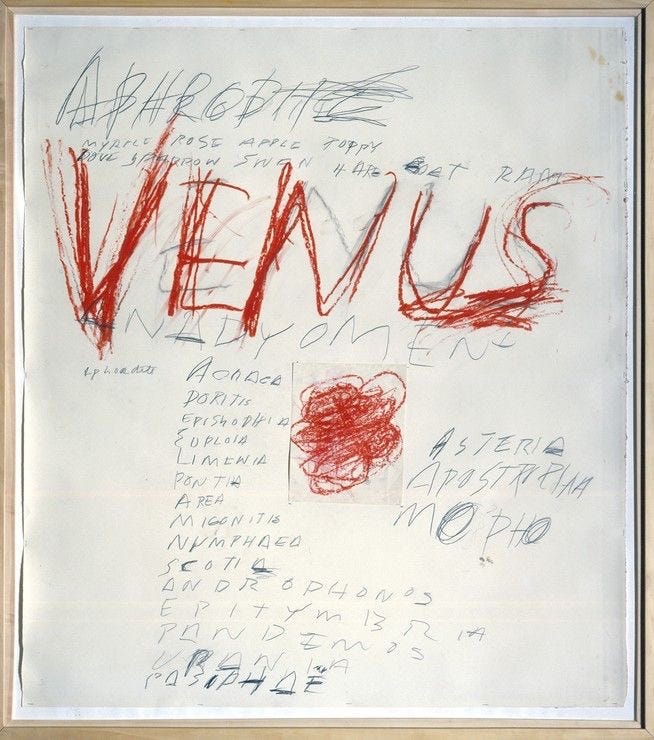 APHRODITE
MYRTLE ROSE APPLE POPPY
DOVE SPARROW SWAN HARE GOAT RAM
VENUS
ANADYOMENE
DORITIS
EUPLOIA
LIMENIA
PONTIA
AREA
MIGONITIS
NUMPHAEA
SCOTIA
ANDROPHONOS
EPITYMBRIA
PANDEMOS
URANIA
PASIPHAE
ASTERIA
APOSTROPHIA
MOPHO